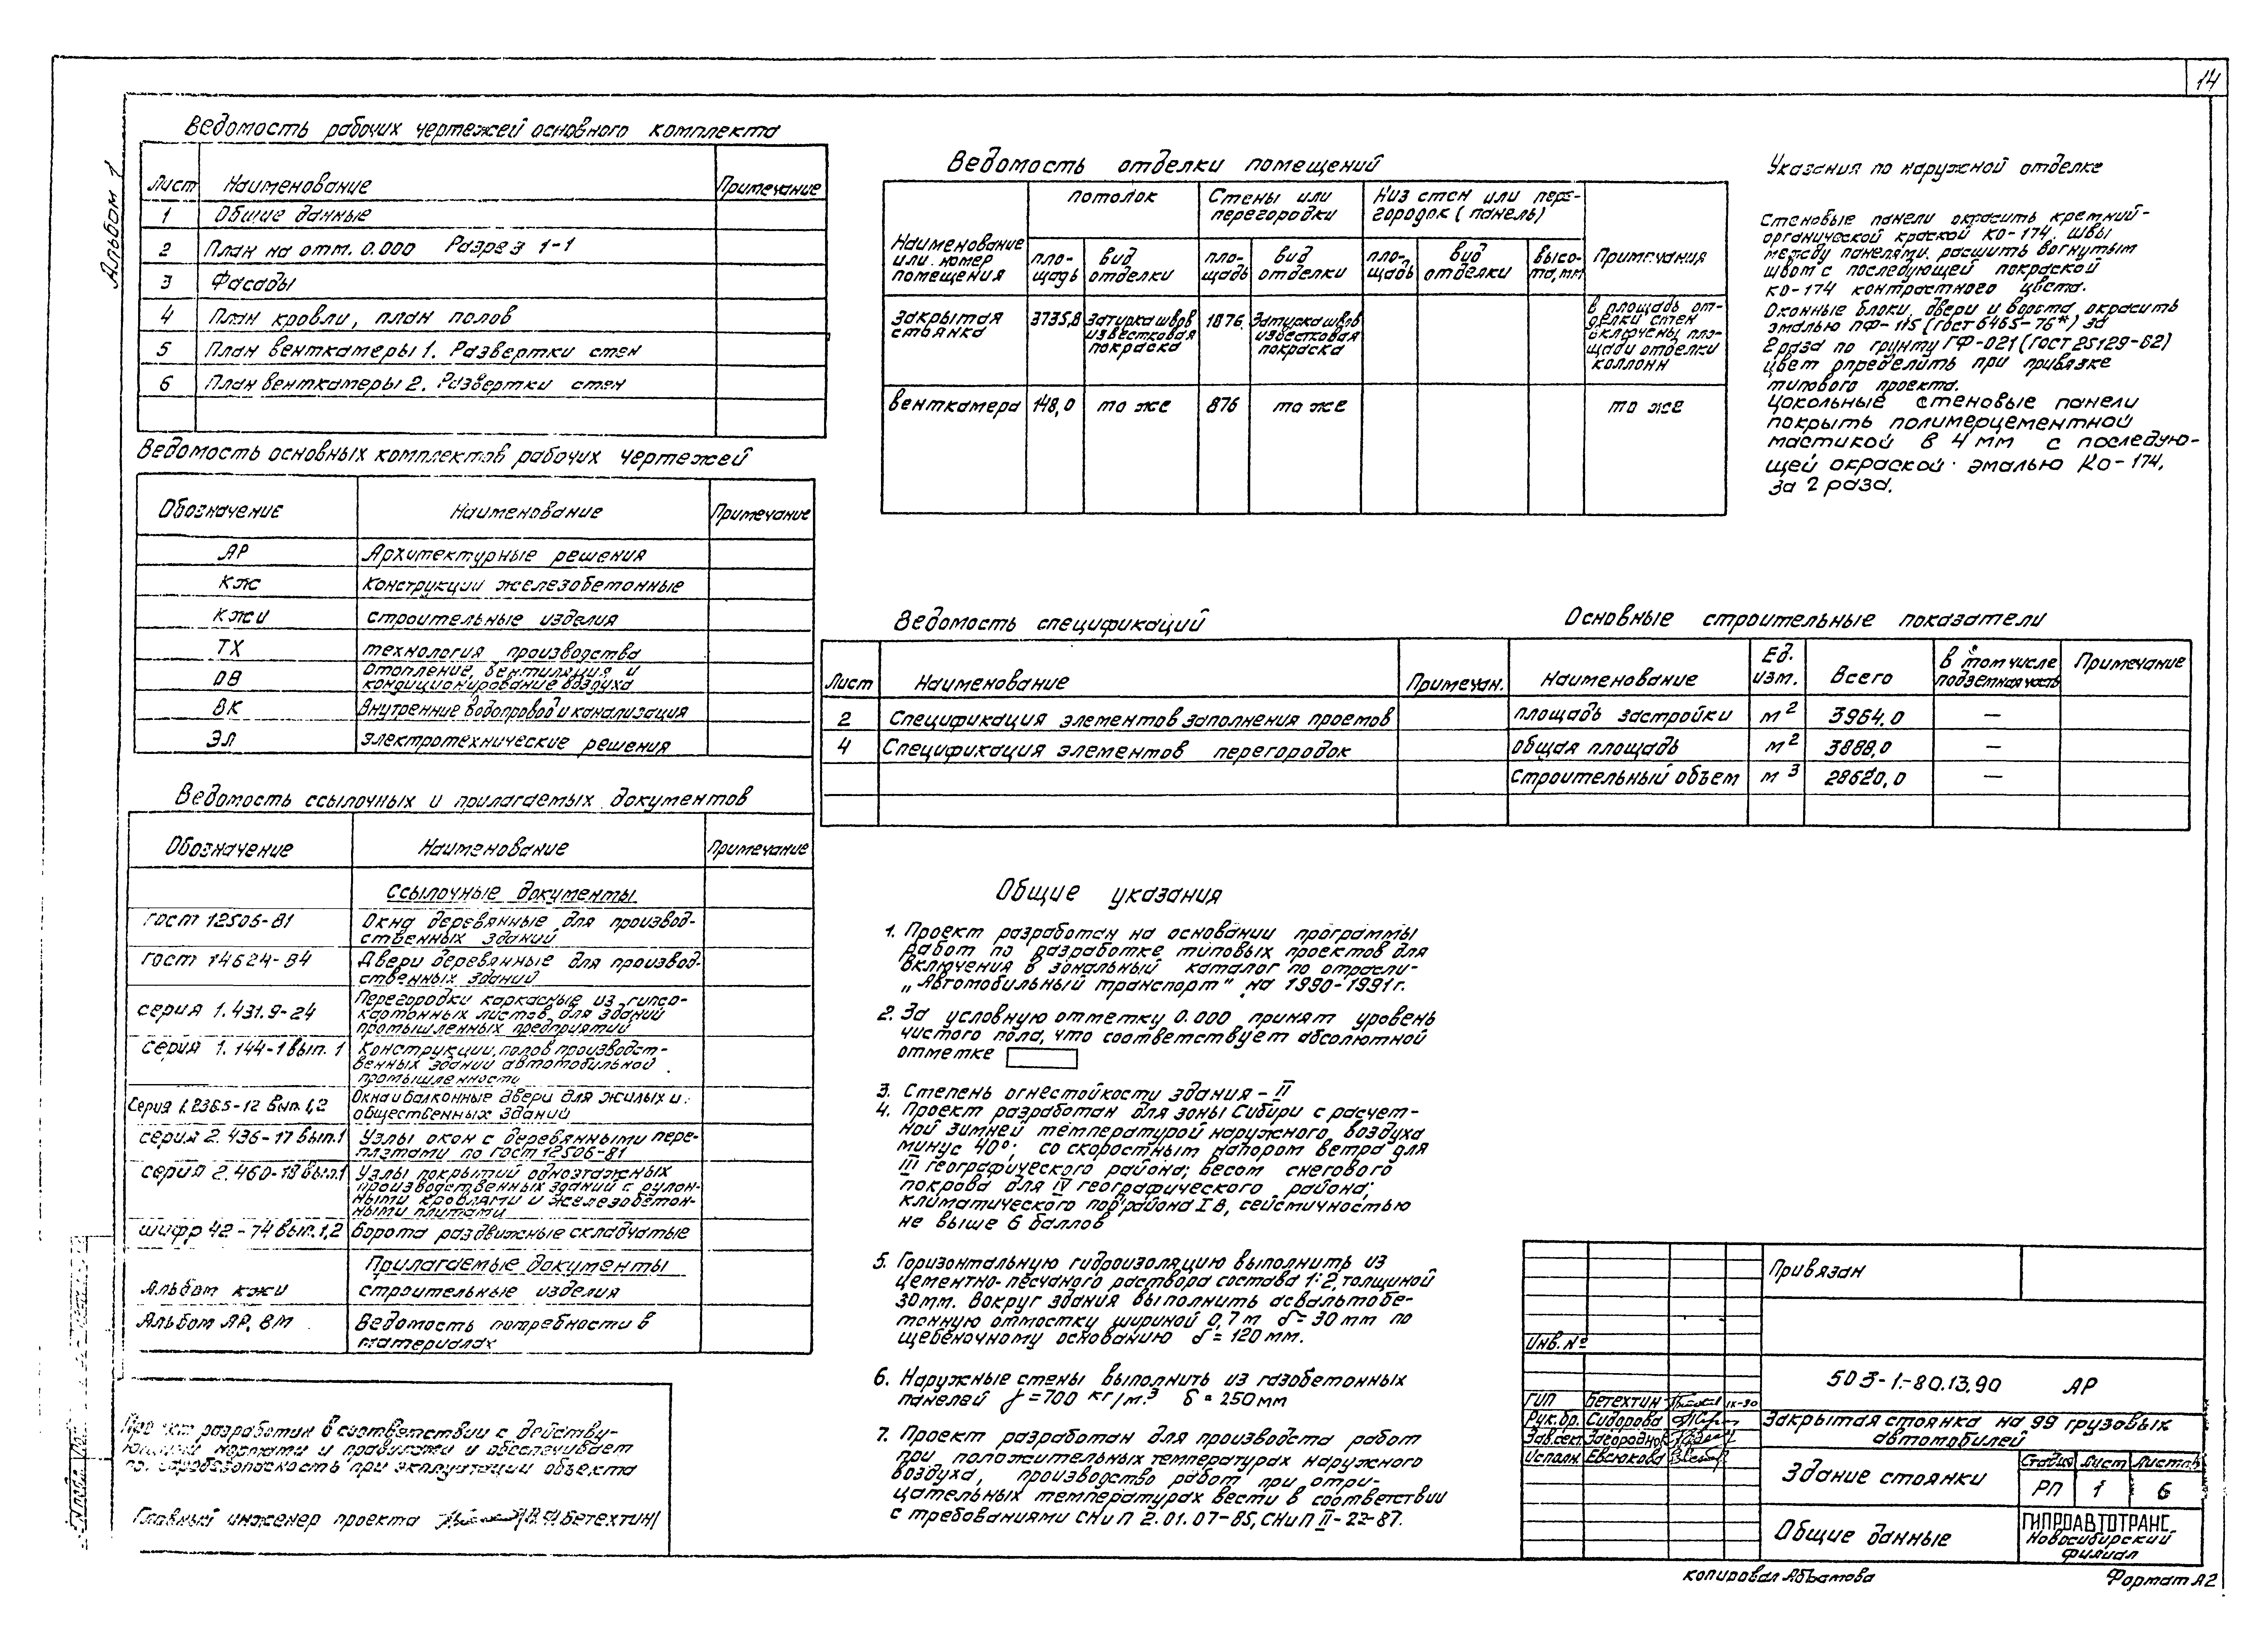 14
Альбом 1
Ведомость рабочих чертежей основного комплекта
Лист Наименование Примечание
1 Общие данные
2 План на отм. 0.000 Разрез 1-1
3 Фасады
4 План кровли, план полов
5 План венткамеры 1. Развертки стен
6 План венткамеры 2. Развертки стен
Ведомость основных комплектов рабочих чертежей
Обозначение Наименование Примечание
АР Архитектурные решения
КЖ Конструкции железобетонные
КЖИ Строительные изделия
ТХ Технология производства
ОВ Отопление, вентиляция и
кондиционирование воздуха
ВК Внутренние водопровод и канализация
ЭЛ Электротехнические решения
Ведомость ссылочных и прилагаемых документов
Обозначение Наименование Примечание
Ссылочные документы
ГОСТ 12506-81 Окна деревянные для производ-
ственных зданий
ГОСТ 14624-84 Двери деревянные для производ-
ственных зданий
серия 1.431.9-24 Перегородки каркасные из гипсо-
картонных листов для зданий
промышленных предприятий
серия 1.144-1 вып. 1 Конструкции полов производст-
венных зданий автомобильной
промышленности
Серия 1.236.5-12 вып. 1,2 Окна и балконные двери для жилых и
общественных зданий
серия 2.436-17 вып.1 Узлы окон с деревянными пере-
плетами по ГОСТ 12506-81
серия 2.460-18 вып.1 Узлы покрытий одноэтажных
производственных зданий с рулон-
ными кровлями и железобетон-
ными плитами
шифр 42-74 вып. 1,2 Ворота раздвижные складчатые
Прилагаемые документы
Альбом КЖИ строительные изделия
Альбом АР, ВМ Ведомость потребности в
материалах
Проект разработан в соответствии с действу-
ющими нормами и правилами и обеспечивает
взрывобезопасность при эксплуатации объекта
Главный инженер проекта Бетехтин
Ведомость отделки помещений
Наименование или номер помещения
потолок Стены или перегородки Низ стен или пере-
городок (панель)
пло-
щадь вид отделки пло-
щадь вид отделки пло-
щадь вид отделки высо-
та, мм Примечания
закрытая стоянка 3735,8 Затирка швов известковая покраска 1876. Затирка швов известковая покраска
в площадь от-
делки стен
включены пло-
щади отделки
колонн
венткамера 148,0 то же 876 то же то же
Указания по наружной отделке
Стеновые панели окрасить кремний-
органической краской КО-174. швы
между панелями расшить вогнутым
швом с последующей покраской
КО-174 контрастного цвета.
Оконные блоки, двери и ворота окрасить
эмалью ПФ-115 (ГОСТ 6465-76*) за
2 раза по грунту ГФ-021 (ГОСТ 25129-82)
цвет определить при привязке
типового проекта.
Цокольные стеновые панели
покрыть полимерцементной
мастикой в 4 мм с последую-
щей окраской эмалью КО-174,
за 2 раза.
Ведомость спецификаций
Лист Наименование Примечан.
2 Спецификация элементов заполнения проемов
4 Спецификация элементов перегородок
Основные строительные показатели
Наименование Ед. изм. Всего в том числе подземная часть Примечание
площадь застройки м² 3964,0 —
общая площадь м² 3888,0 —
Строительный объем м³ 28620,0 —
Общие указания
1. Проект разработан на основании программы
работ по разработке типовых проектов для
включения в зональный каталог по отрасли-
„Автомобильный транспорт" на 1990-1991г.
2. За условную отметку 0.000 принят уровень
чистого пола, что соответствует абсолютной
отметке
3. Степень огнестойкости здания – II
4. Проект разработан для зоны Сибири с расчет-
ной зимней температурой наружного воздуха
минус 40°; со скоростным напором ветра для
III географического района; весом снегового
покрова для IV географического района;
климатического подрайона IВ, сейсмичностью
не выше 6 баллов
5. Горизонтальную гидроизоляцию выполнить из
цементно-песчаного раствора состава 1:2, толщиной
30мм. Вокруг здания выполнить асфальтобе-
тонную отмостку шириной 0,7 м δ=30 мм по
щебеночному основанию δ=120 мм.
6. Наружные стены выполнить из газобетонных
панелей γ=700 кг/м.³ δ=250мм
7. Проект разработан для производста работ
при положительных температурах наружного
воздуха, производство работ при отри-
цательных температурах вести в соответствии
с требованиями СНиП 2.01.07-85, СНиП II-22-87.
Привязан
Инв. №
503-1-80.13.90 АР
ГИП Бетехтин IX-90
Рук.бр. Сидорова
Зав.сект. Завороднов
Исполн. Евсюкова
Закрытая стоянка на 99 грузовых
автомобилей
Здание стоянки
Стадия Лист Листов
РП 1 6
Общие данные
ГИПРОАВТОТРАНС
Новосибирский
филиал
копировал Абъатова
Формат А2